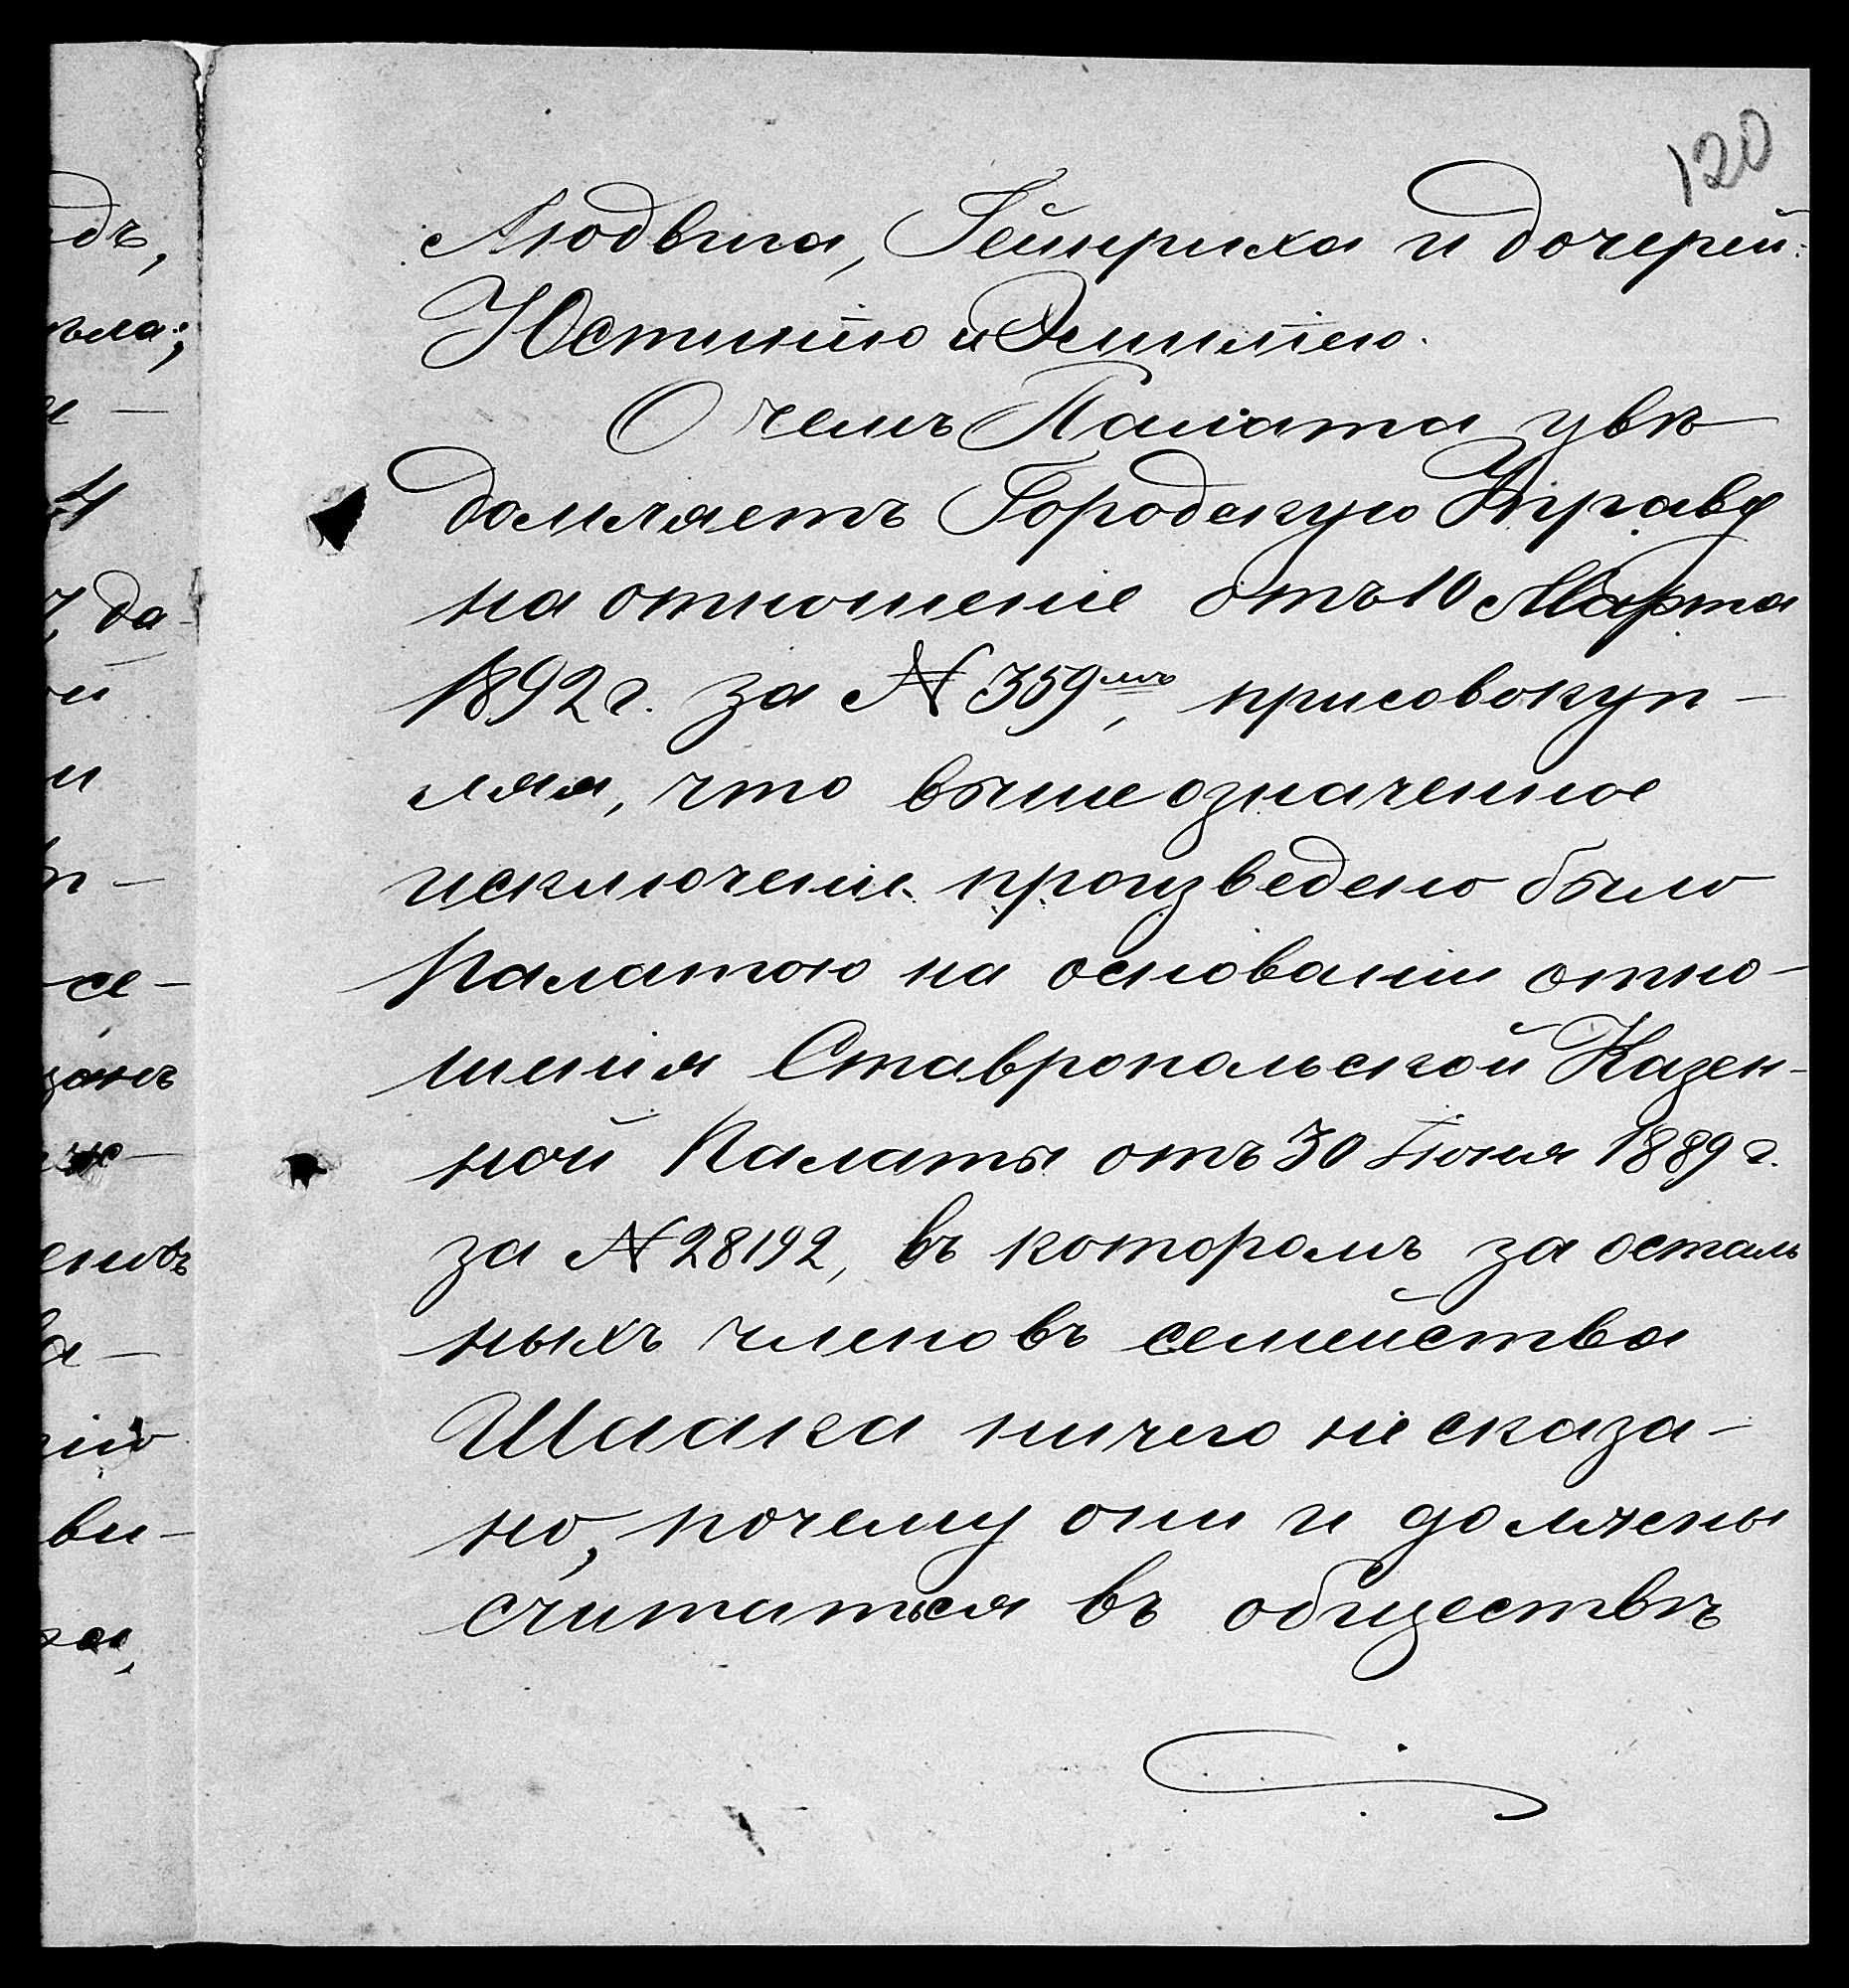 120
Людвига, Гейнриха и дочерей:
Юстинію и Эмилію.
О чемъ Палата увѣ
домляетъ Городскую Управу
на отношеніе отъ 10 Марта
1892 г. за № 359мъ, присовокуп-
ляя, что вышеозначенное
исключеніе произведено было
Палатою на основаніи отно-
шенія Ставропольской Казен-
ной Палаты отъ 30 Іюня 1889 г.
за № 28192, въ которомъ за осталь
ныхъ членовъ семейства
Шаака ничего не сказа-
но, почему они и должны
считаться въ обществѣ